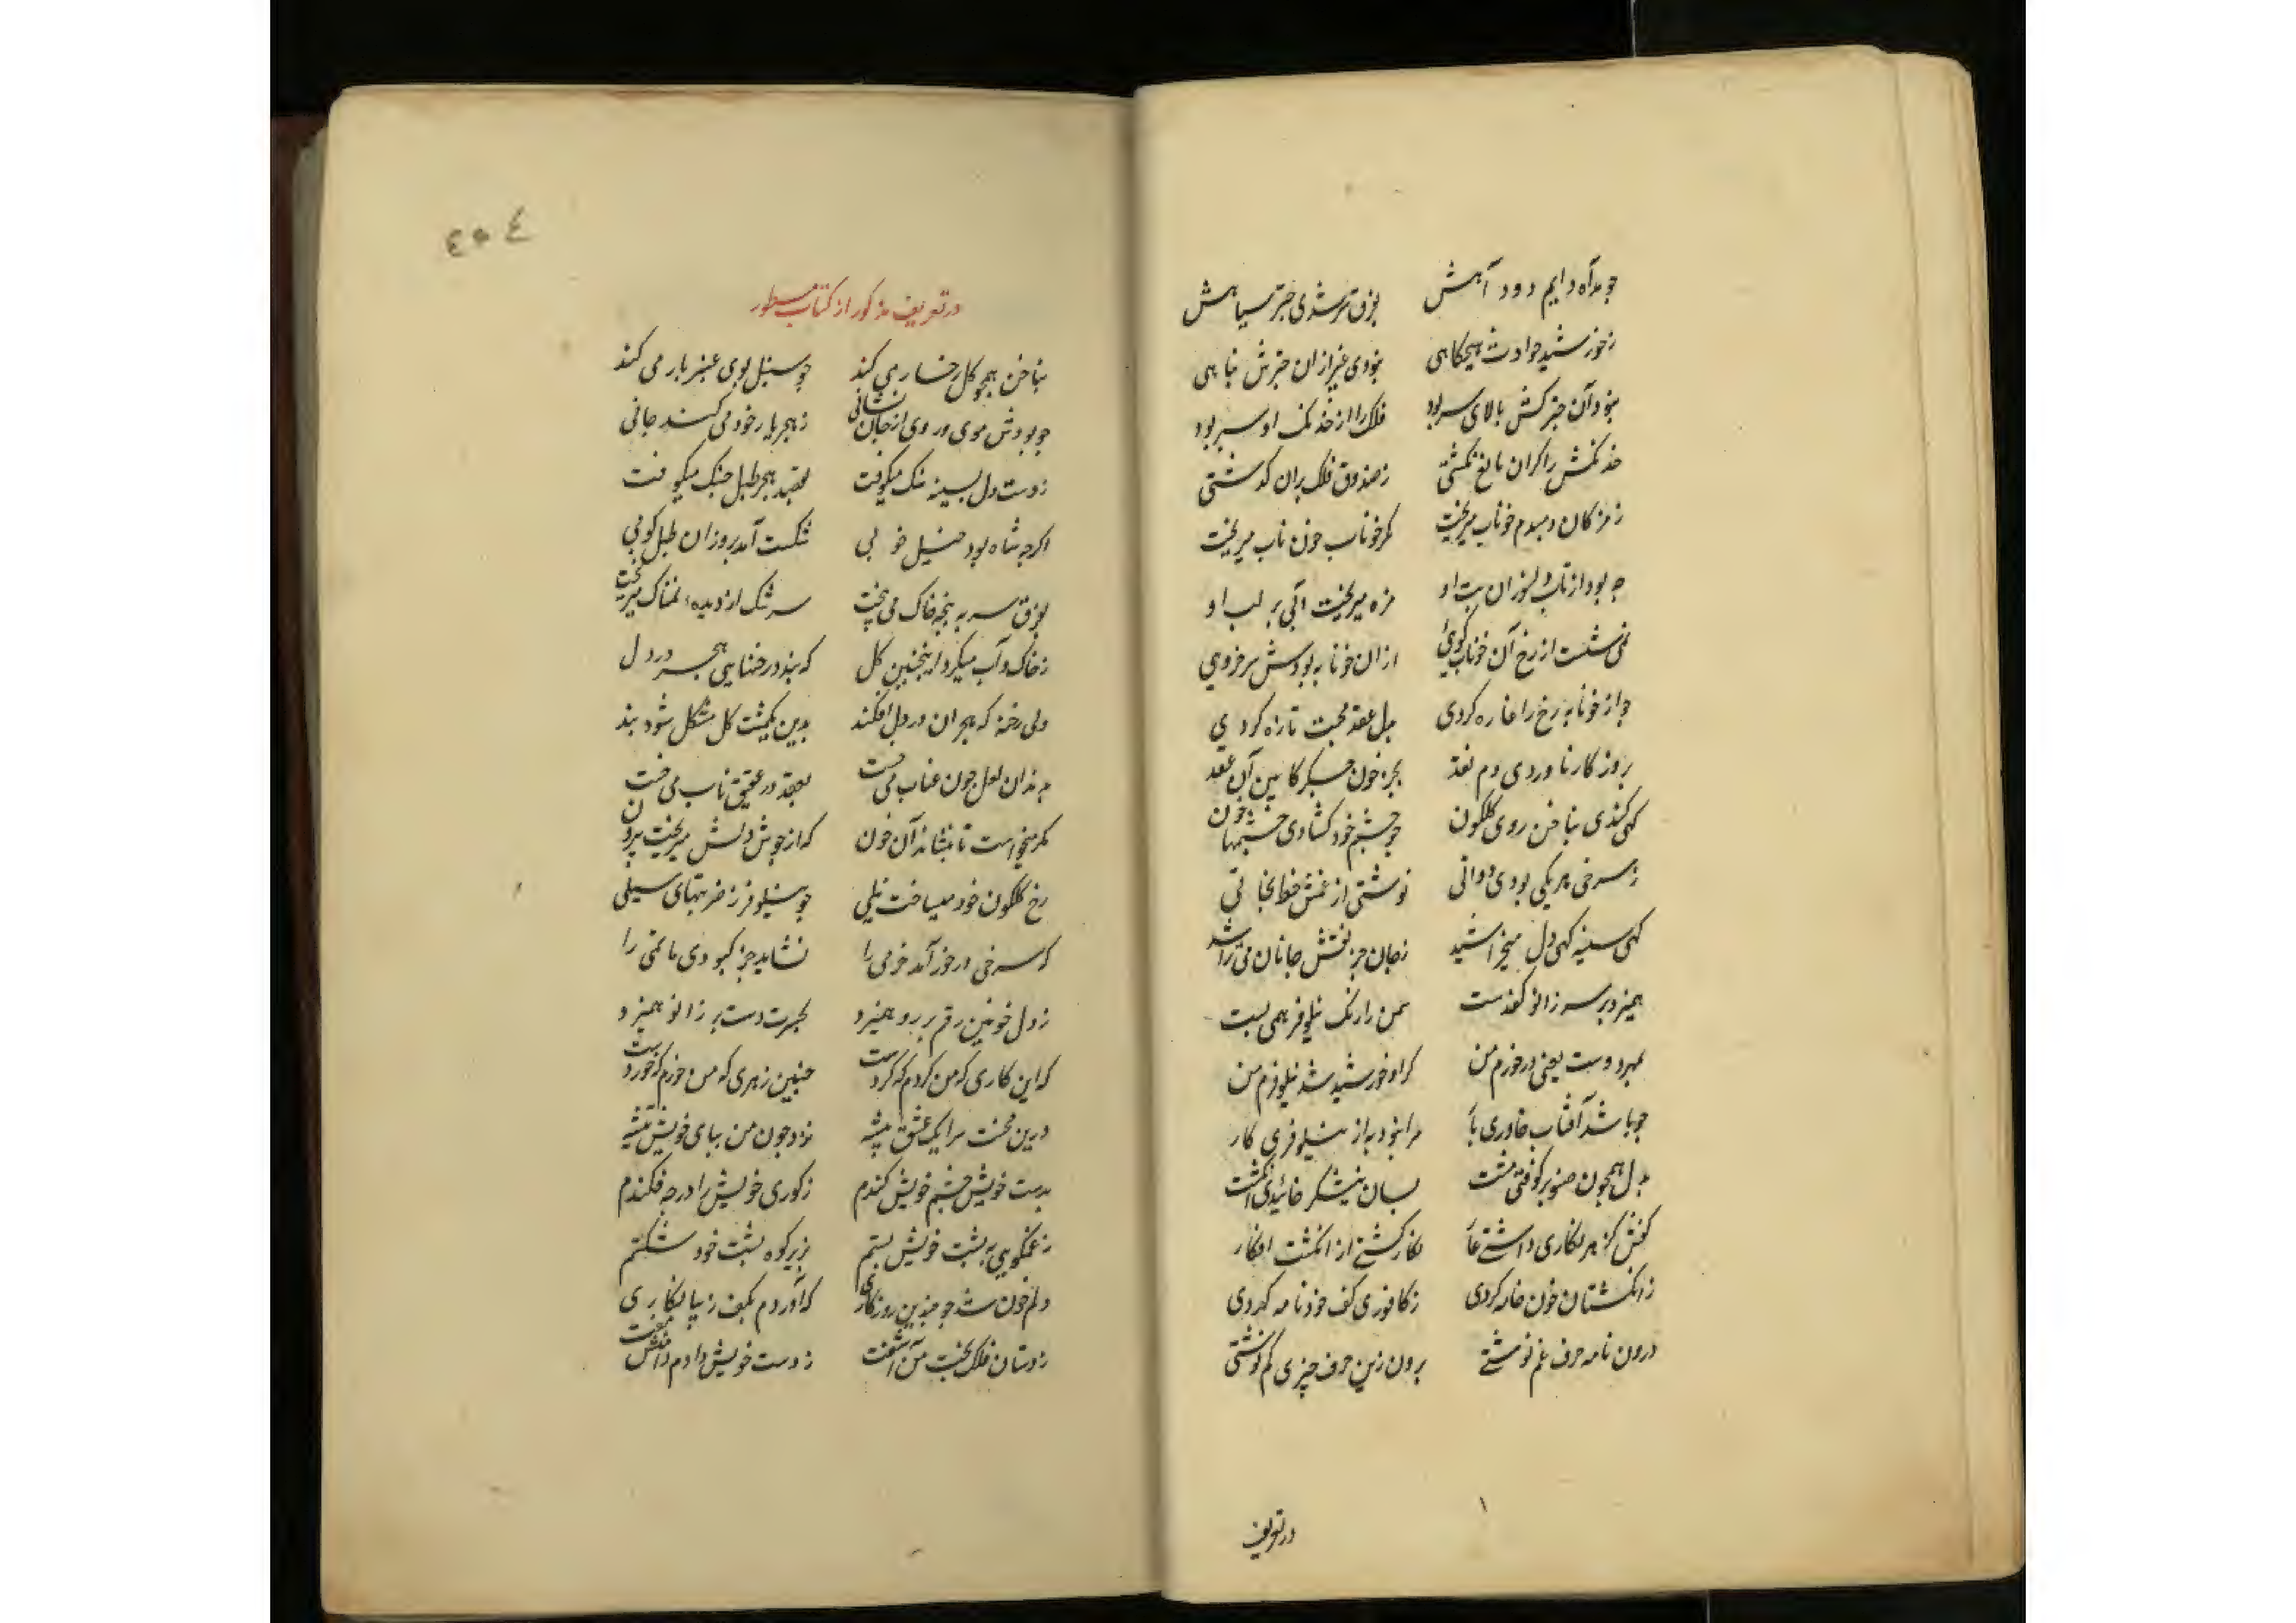 چو مد آه دایم دود آهش
بفرق سر شدی چتر سیاهش
ز خورشید حوادث هیچگاهی
نبودی غیر ازان چترش پناهی
نبود آن چتر کش بالای سر بود
فلک را از خدنک او سپر بود
خدنکش را کران مانع نکشتی
ز صندوق فلک پران کذشتی
ز مژکان دمبدم خوناب میریخت
مکو خوناب خون ناب میریخت
چه بود از تاب دل سوزان تب او
مژه میریخت آبی بر لب او
نمی شست از رخ آن خوناب کویی
ازان خونابه بودش سرخ رویی
چو از خونابه رخ را غازه کردی
بدل عقد محبت تازه کردی
بروی کار ناوردی دم نقد
بجز خون جکر کابین آن عقد
کهی کندی بناخن روی کلکون
چو چشم خود کشادی چشمهای خون
ز سرخی هر یکی بودی دواتی
نوشتی از غمش خط نجاتی
کهی سینه کهی دل میخراشید
ز جان جز نقش جانان می تراشید
همیزد بر سر زانو کف دست
سمن را رنک نیلوفر همی بست
بمهر دوست یعنی در خورم من
کر او خورشید شد نیلوفرم من
چو باشد آفتاب خاوری یار
مرا نبود به از نیلوفری کار
بدل همچون صنوبر کوفتی مشت
بسان نیشکر خائیدی انکشت
کفش کز هر نکاری داشتی عار
نکارین کشتی از انکشت افکار
ز انکشتان خون خامه کردی
ز کافوری کف خود نامه کردی
درون نامه حرف غم نوشتی
برون زین حرف چیزی کم نوشتی
در تعریف
٤٥٤
در تعریف مذکور از کتاب مسطور
بناخن همچو کل رخسار می کند
چو سنبل موی عنبر بار می کند
چو بودش موی و روی از جان نشانی
ز هجر یار خود می کند جانی
ز دست دل بسینه سنک میکوفت
بقصد هجر طبل جنک میکوفت
اکرچه شاه بود خیل خوبی
شکست آمد بر و زان طبل کوبی
بفرق سر به پنجه خاک می بیخت
سرشک از دیده نمناک میریخت
ز خاک و آب میکرد اینچنین کل
که بندد رخنهایی هجر در دل
ولی رخنه که هجران در دل افکند
بدین یکمشت کل مشکل شود بند
بدندان لعل چون عناب می خست
بعقد در عقیق ناب می خست
مکر میخواست تا بنشاند آن خون
که از جوش دلش میریخت بیرون
رخ کلکون خود میساخت نیلی
چو نیلوفر ز ضربتهای سیلی
که سرخی در خور آمد خرمی را
نشاید جز کبودی ماتمی را
ز دل خونین رقم بر رو همیزد
بحسرت دست بر زانو همیزد
که این کاری که من کردم که کردست
چنین زهری که من خوردم که خوردست
درین محنت سرا یک عشق پیشه
نزد چون من بپای خویش تیشه
بدست خویش چشم خویش کندم
ز کوری خویش را در چه فکندم
ز غم کوهی به پشت خویش بستم
بزیر کوه پشت خود شکستم
دلم خون شد چو چندین روزکاری
که آوردم بکف زیبا نکاری
ز دستان فلک بخت من آشفت
ز دست خویش دادم دامنش مفت